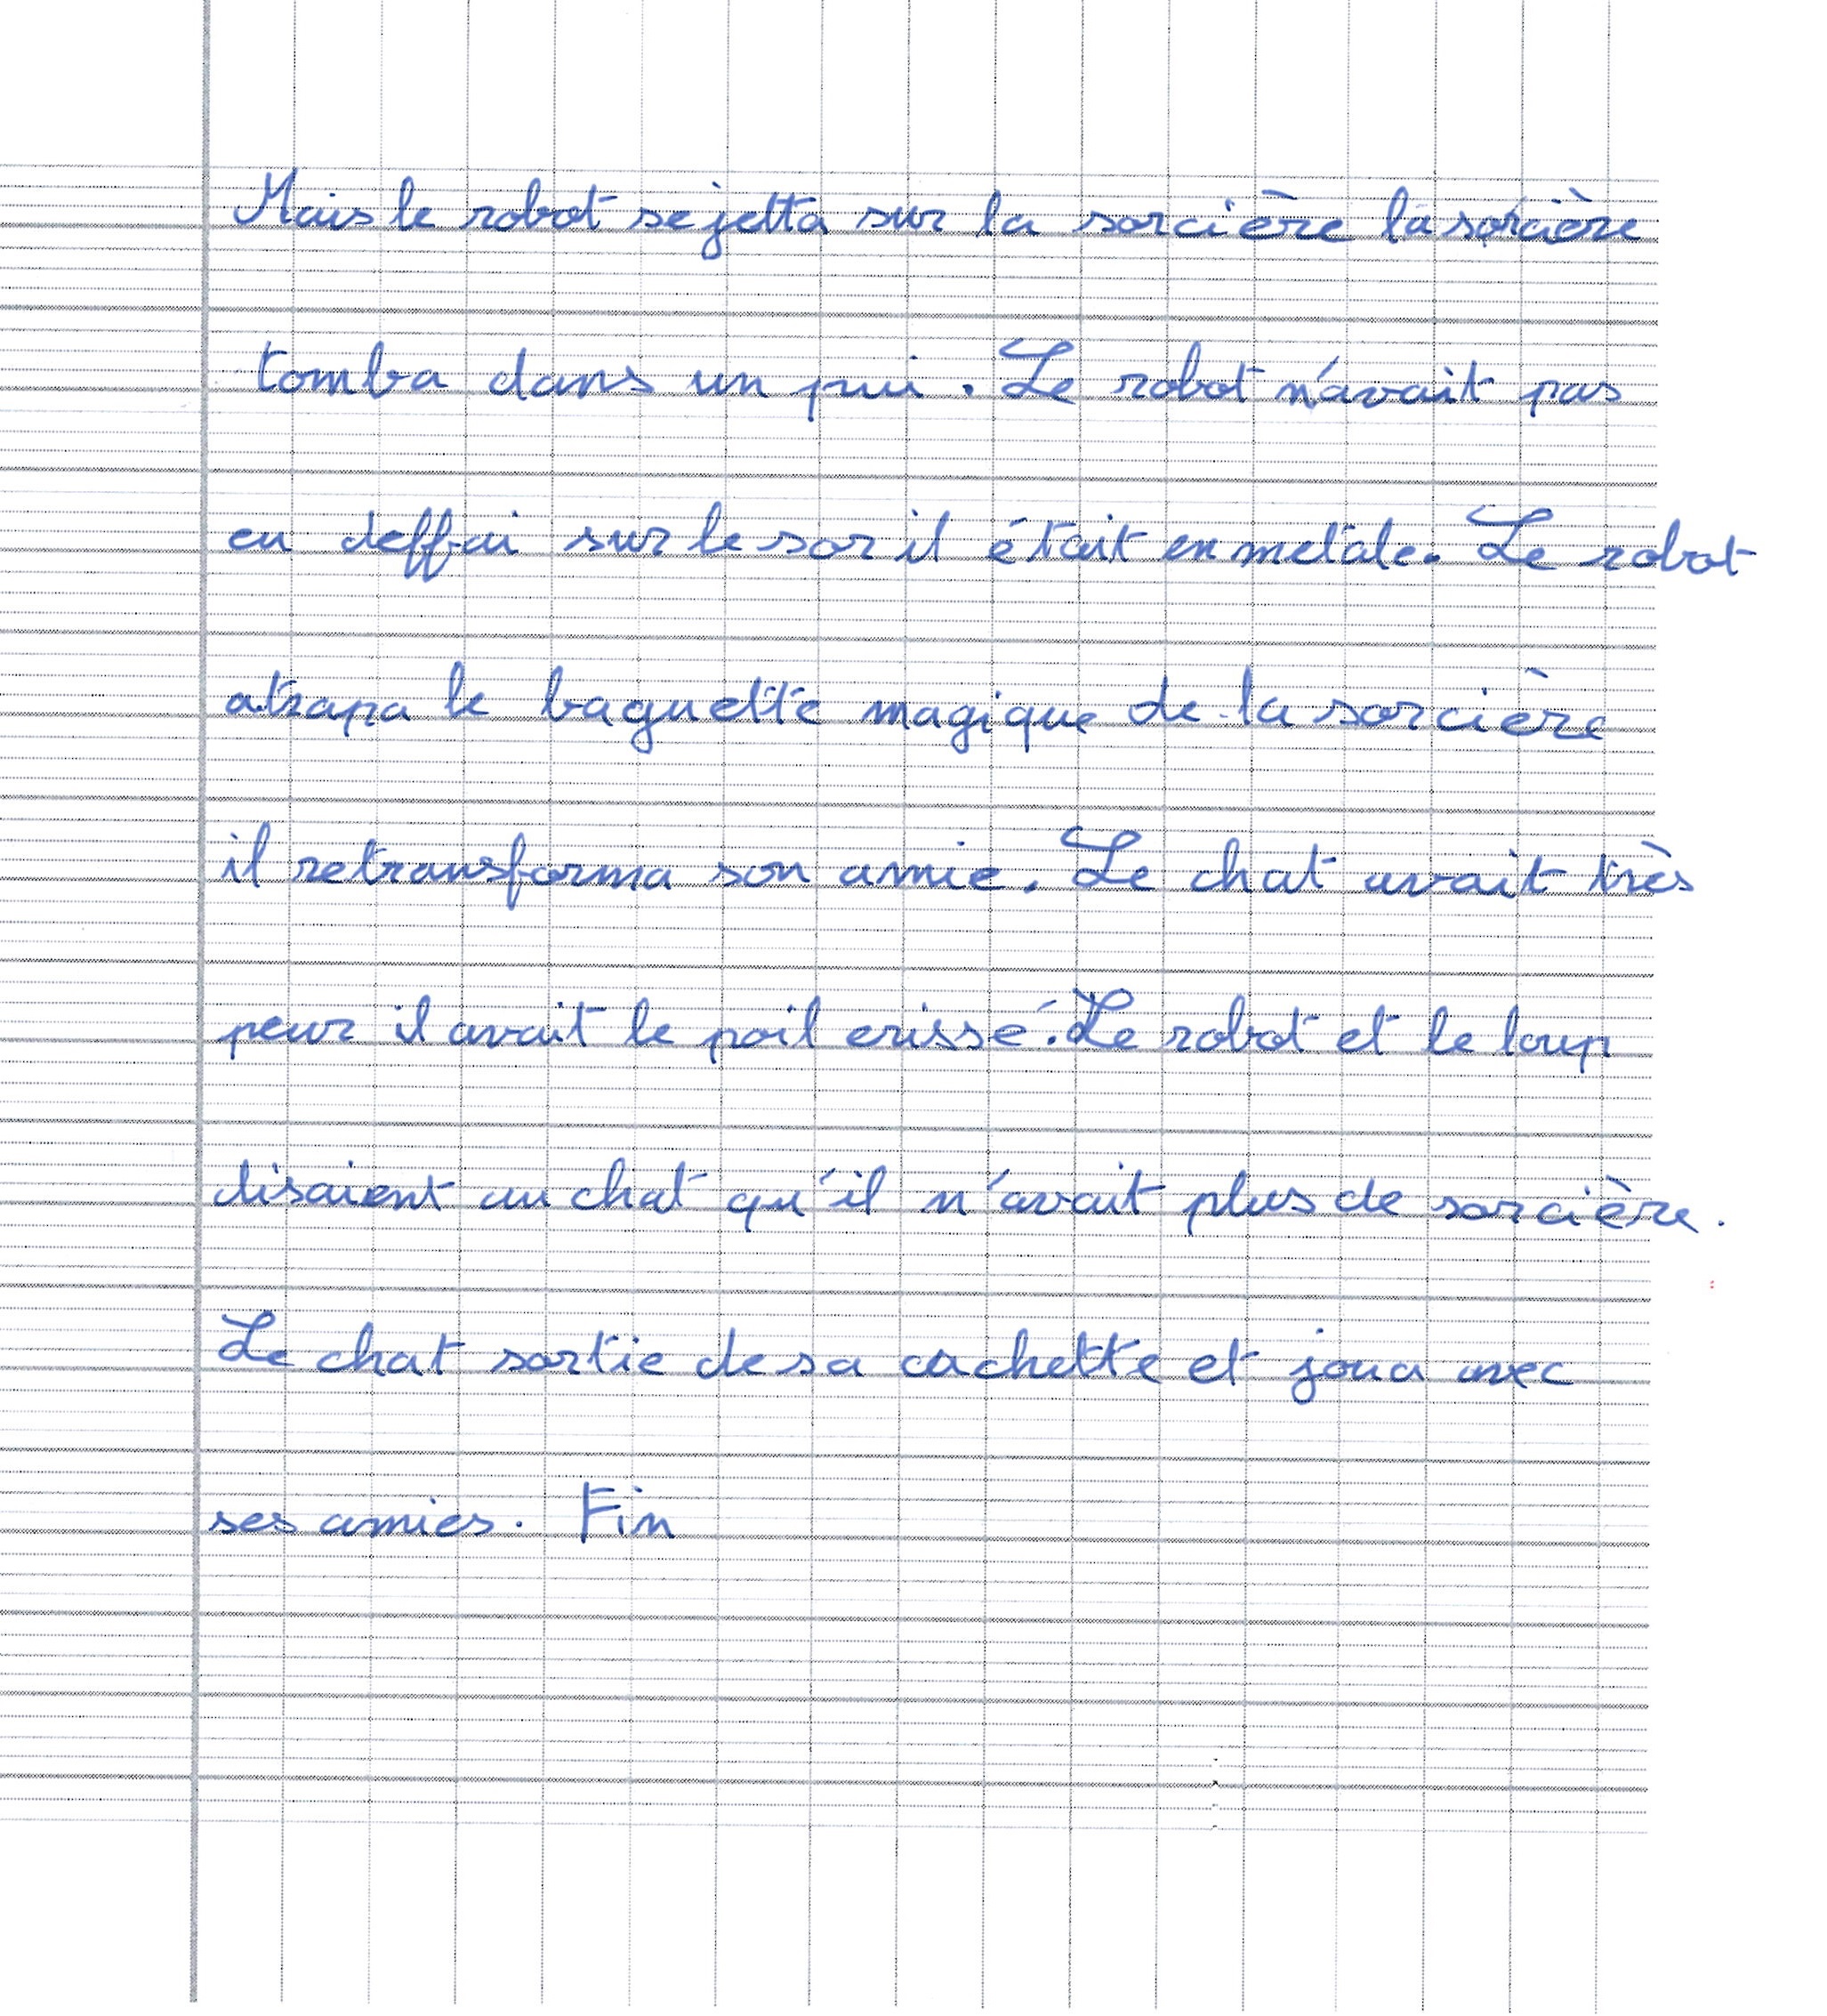 Mais le robot se jetta sur la sorcière la sorcière
tomba dans un pui. Le robot n'avait pas
eu deffai sur le sor il était en metale. Le robot
atrapa le baguette magique de la sorcière
il retransforma son amie. Le chat avait très
peur il avait le poil erissé. Le robot et le loup
disaient au chat qu'il n'avait plus de sorcière.
Le chat sortie de sa cachette et joua avec
ses amies. Fin